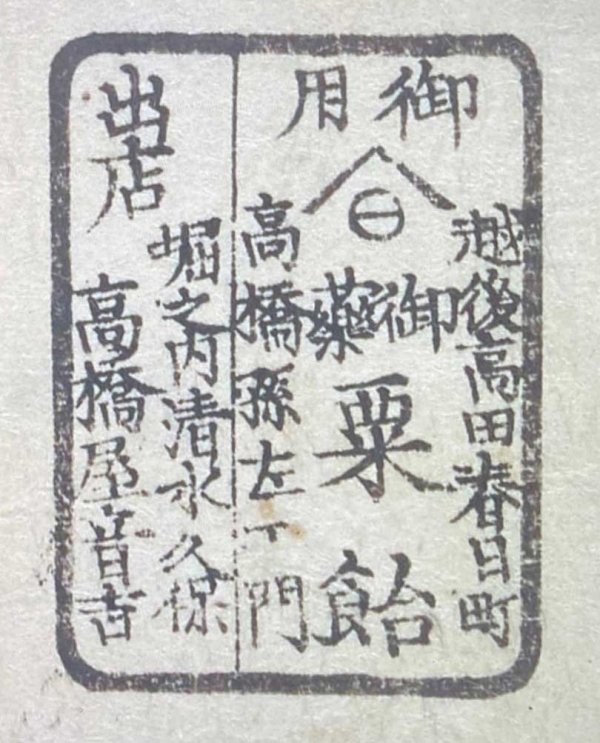 御用
越後高田春日町
御藥
粟飴
高橋孫左エ門
出店
堀之内清水久保
高橋屋音吉